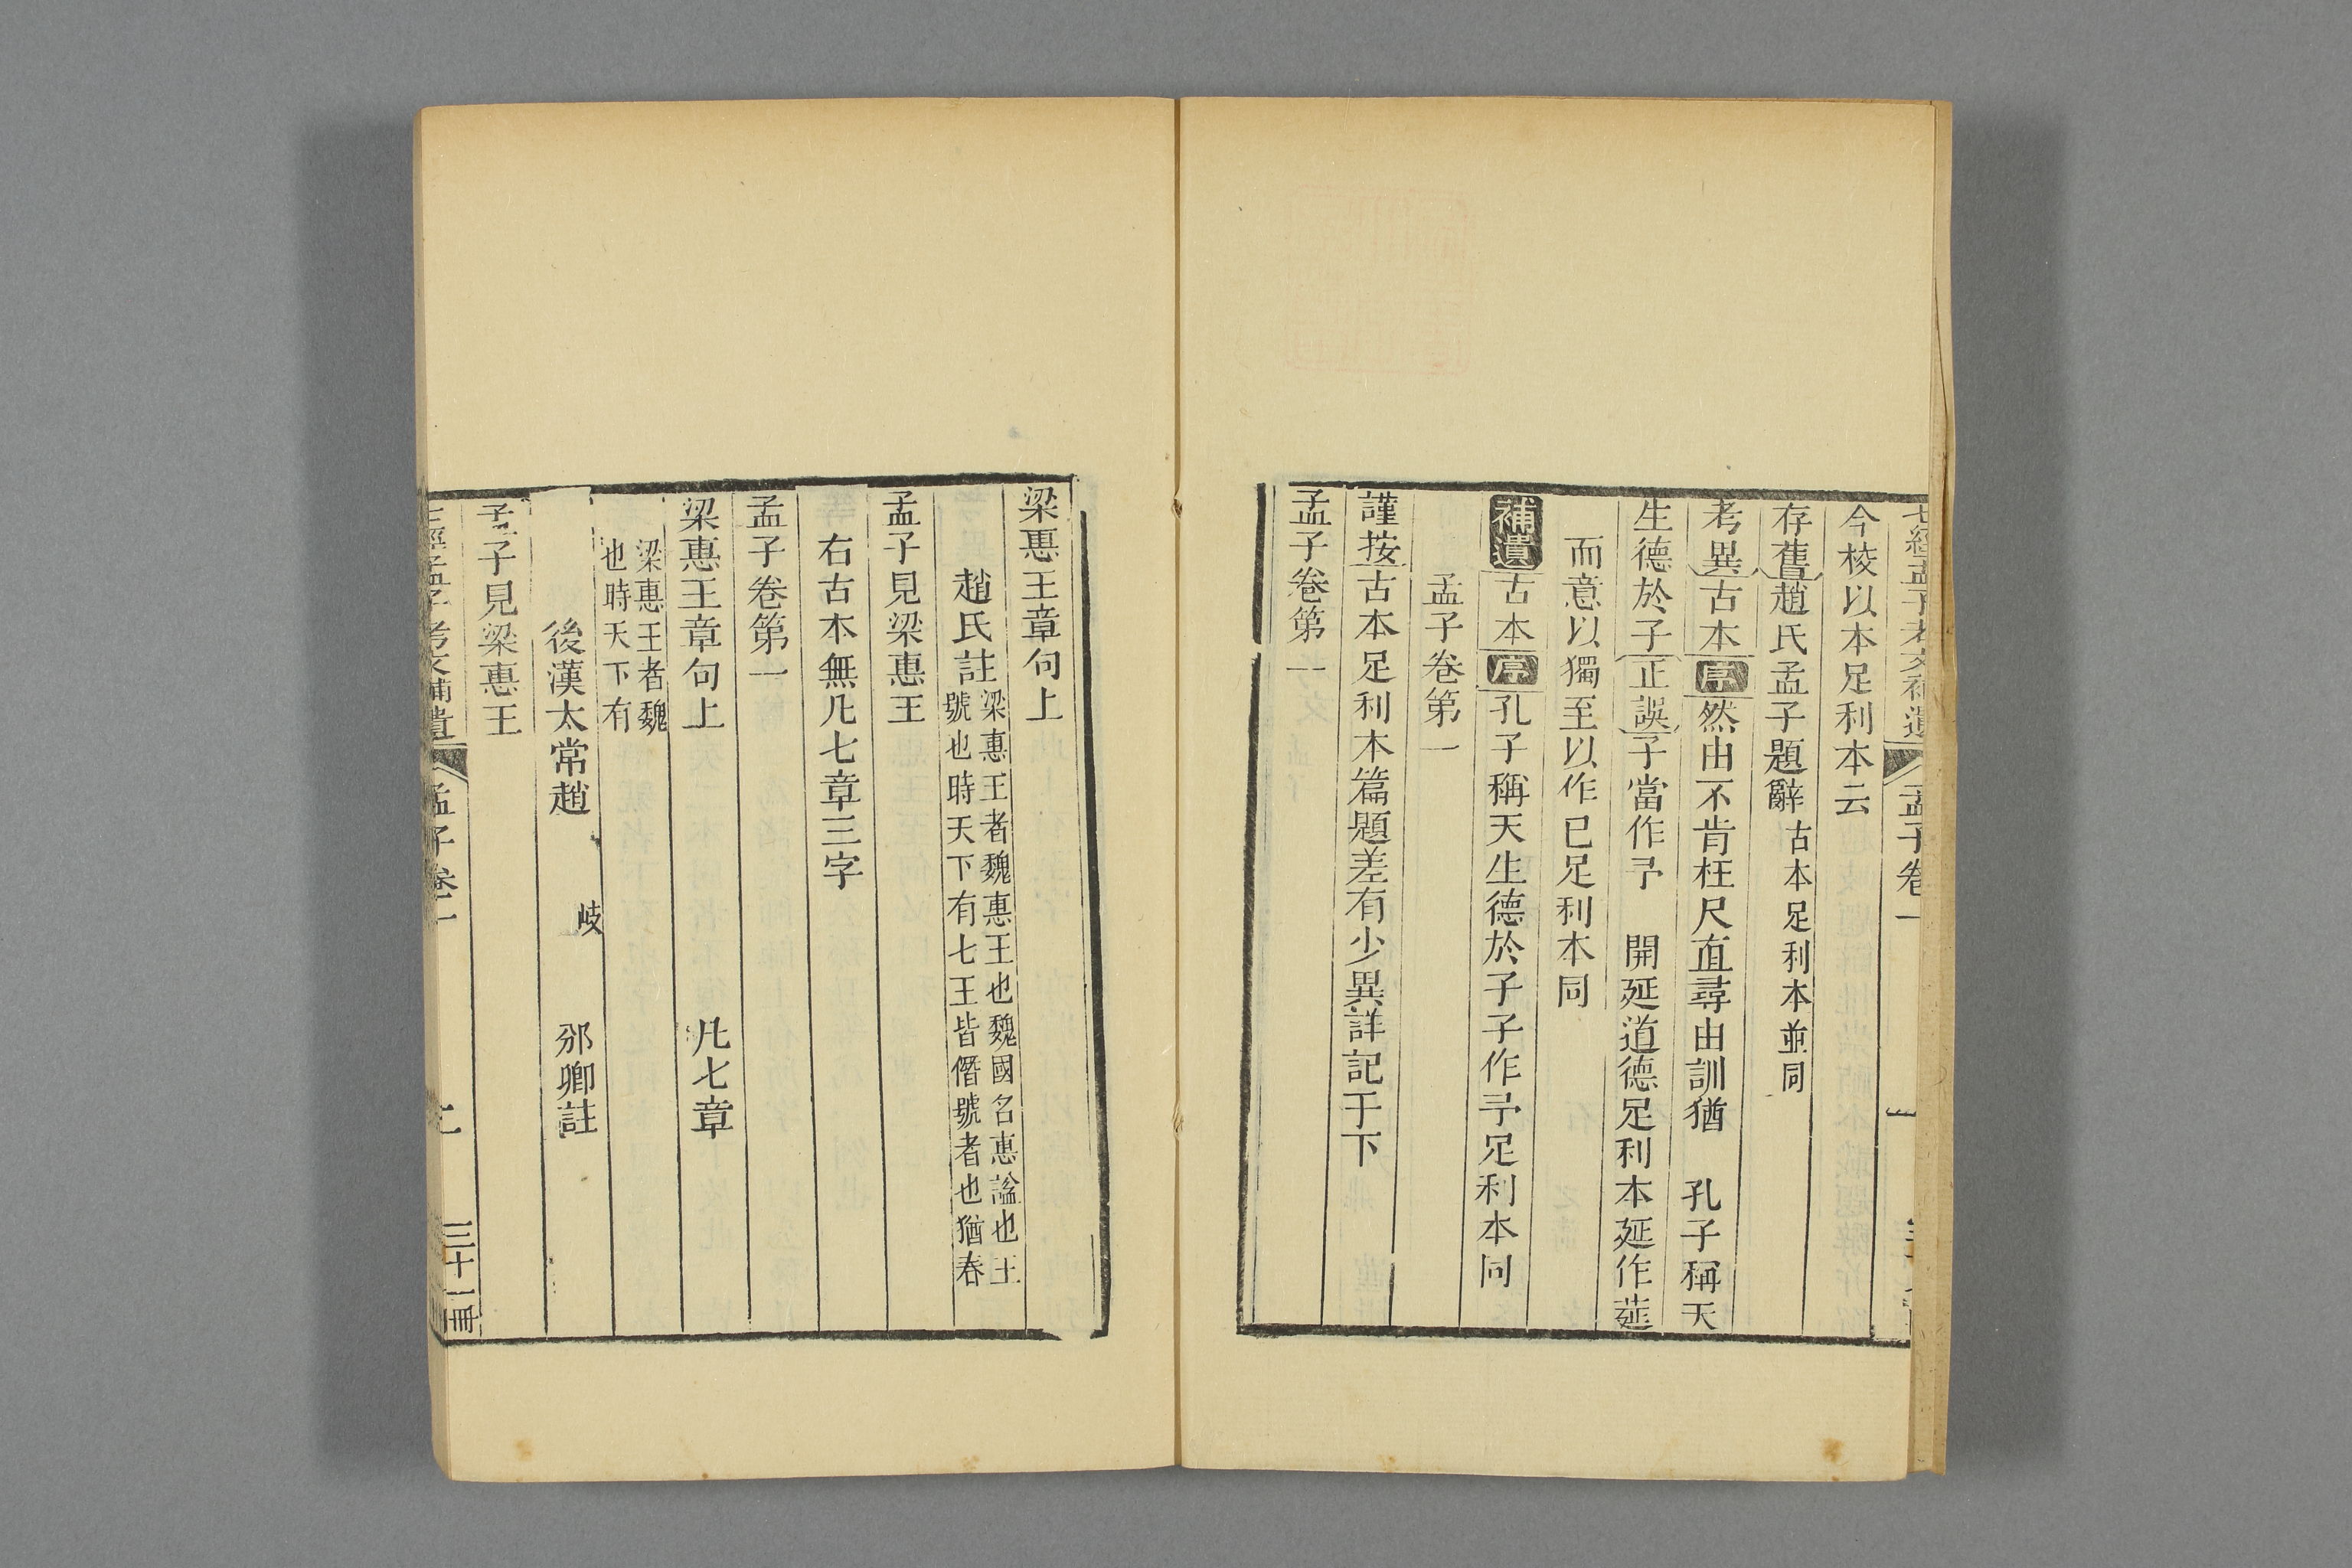 七經孟子考文補遺 孟子卷一 一
今棱以本足利本云
存舊趙氏孟子題辭古本足利本並同
考異古本序然由不肯枉尺直尋由訓猶 孔子稱天
生德於子正誤子當作予 開延道德足利本延作莚
而意以獨至以作已足利本同
補遺古本序孔子稱天生德於子子作予足利本同
孟子卷第一
謹按古本足利本篇題差有少異詳記于下
孟子卷第一
梁惠王章句上
趙氏註梁惠王者魏惠王也魏國名惠謚也王
號也時天下有七王皆僭號者也猶春
孟子見梁惠王
右古本無凡七章三字
孟子卷第一
梁惠王章句上 凡七章
梁惠王者魏
也時天下有
後漢太常趙 岐 邠卿註
孟子見梁惠王
七經孟子考文補遺 孟子卷一 二 三十一冊